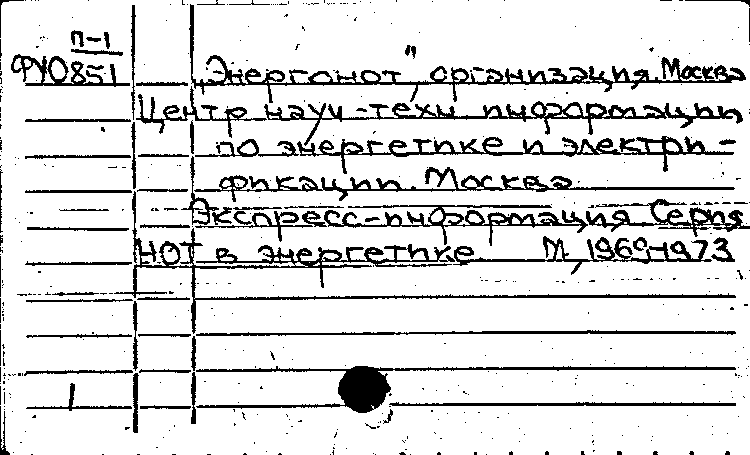 П-1
ФУ0851 „Энергонот", организация. Москва
Центр науч-техн информации
по энергетике и электри-
фикации. Москва
Экспресс-информация Серия
НОТ в энергетике М, 1969-1973
1